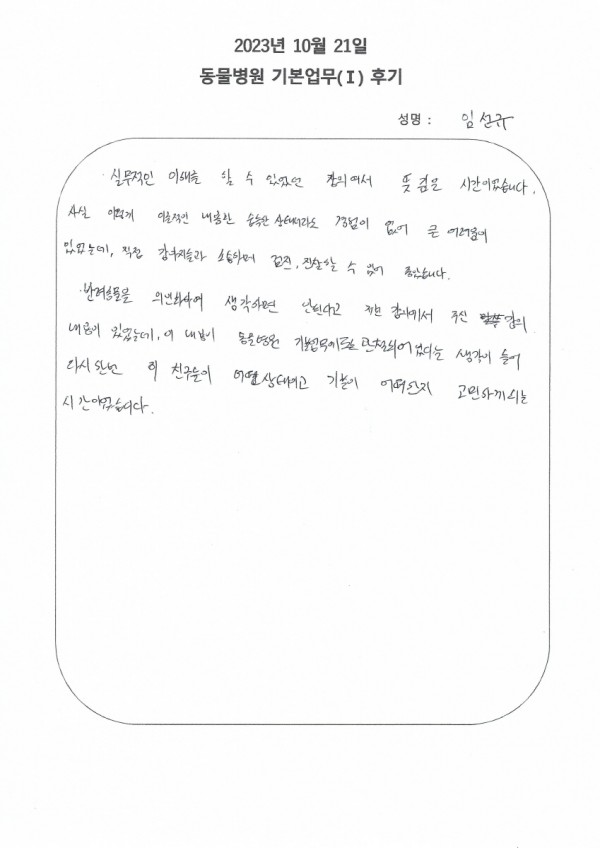 2023년 10월 21일
동물병원 기본업무(I) 후기
성명 : 임선규
실무적인 이해를 할 수 있었던 강의여서 뜻 깊은 시간이었습니다.
사실 이렇게 이론적인 내용만 습득한 상태에서라도 경험이 없어 큰 어려움이
있었는데, 직접 강아지들과 소통하며 교진, 진찰할 수 있어 좋았습니다.
반려동물을 의인화하여 생각하면 안된다고 저번 강사께서 주신 강의
내용이 있었는데, 이 내용이 동물병원 기본업무에도 생각이 들어
다시 한번 이 친구들이 어떤 상태이고 기분이 어떠한지 고민하게 되는
시간이었습니다.